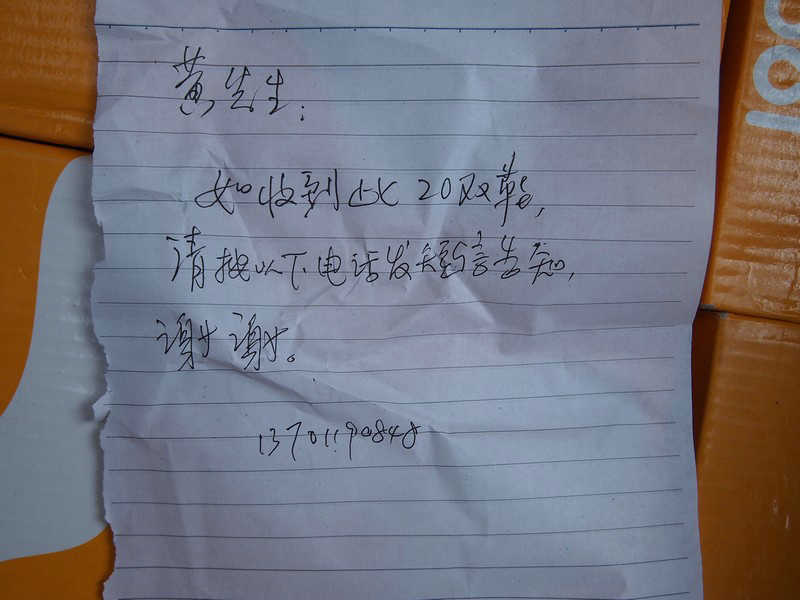 黄先生:
如收到此20双鞋,
请按以下电话发短信告知,
谢谢。
13701190848